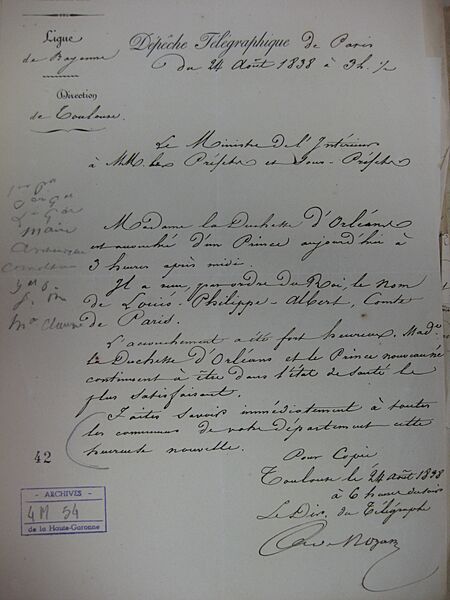 Ligne
de Bayonne
Direction
de Toulouse.
Dépêche Télégraphique de Paris
du 24 Août 1838 à 3h. ½
Le Ministre de l'Intérieur
à MM. les Préfets et Sous-Préfets
Madame la Duchesse d'Orléans
est accouchée d'un Prince aujourd'hui à
3 heures après midi.
Il a reçu, par ordre du Roi, le nom
de Louis-Philippe-Albert, Comte
de Paris.
L'accouchement a été fort heureux. Made
la Duchesse d'Orléans et le Prince nouveau né
continuent à être dans l'état de santé le
plus satisfaisant.
Faites savoir immédiatement à toutes
les communes de votre département cette
heureuse nouvelle.
Maire
42
Pour Copie
Toulouse le 24 août 1838
à 6 heures du soir
Le Dir. du Télégraphe
- ARCHIVES -
4 M 54
de la Haute-Garonne